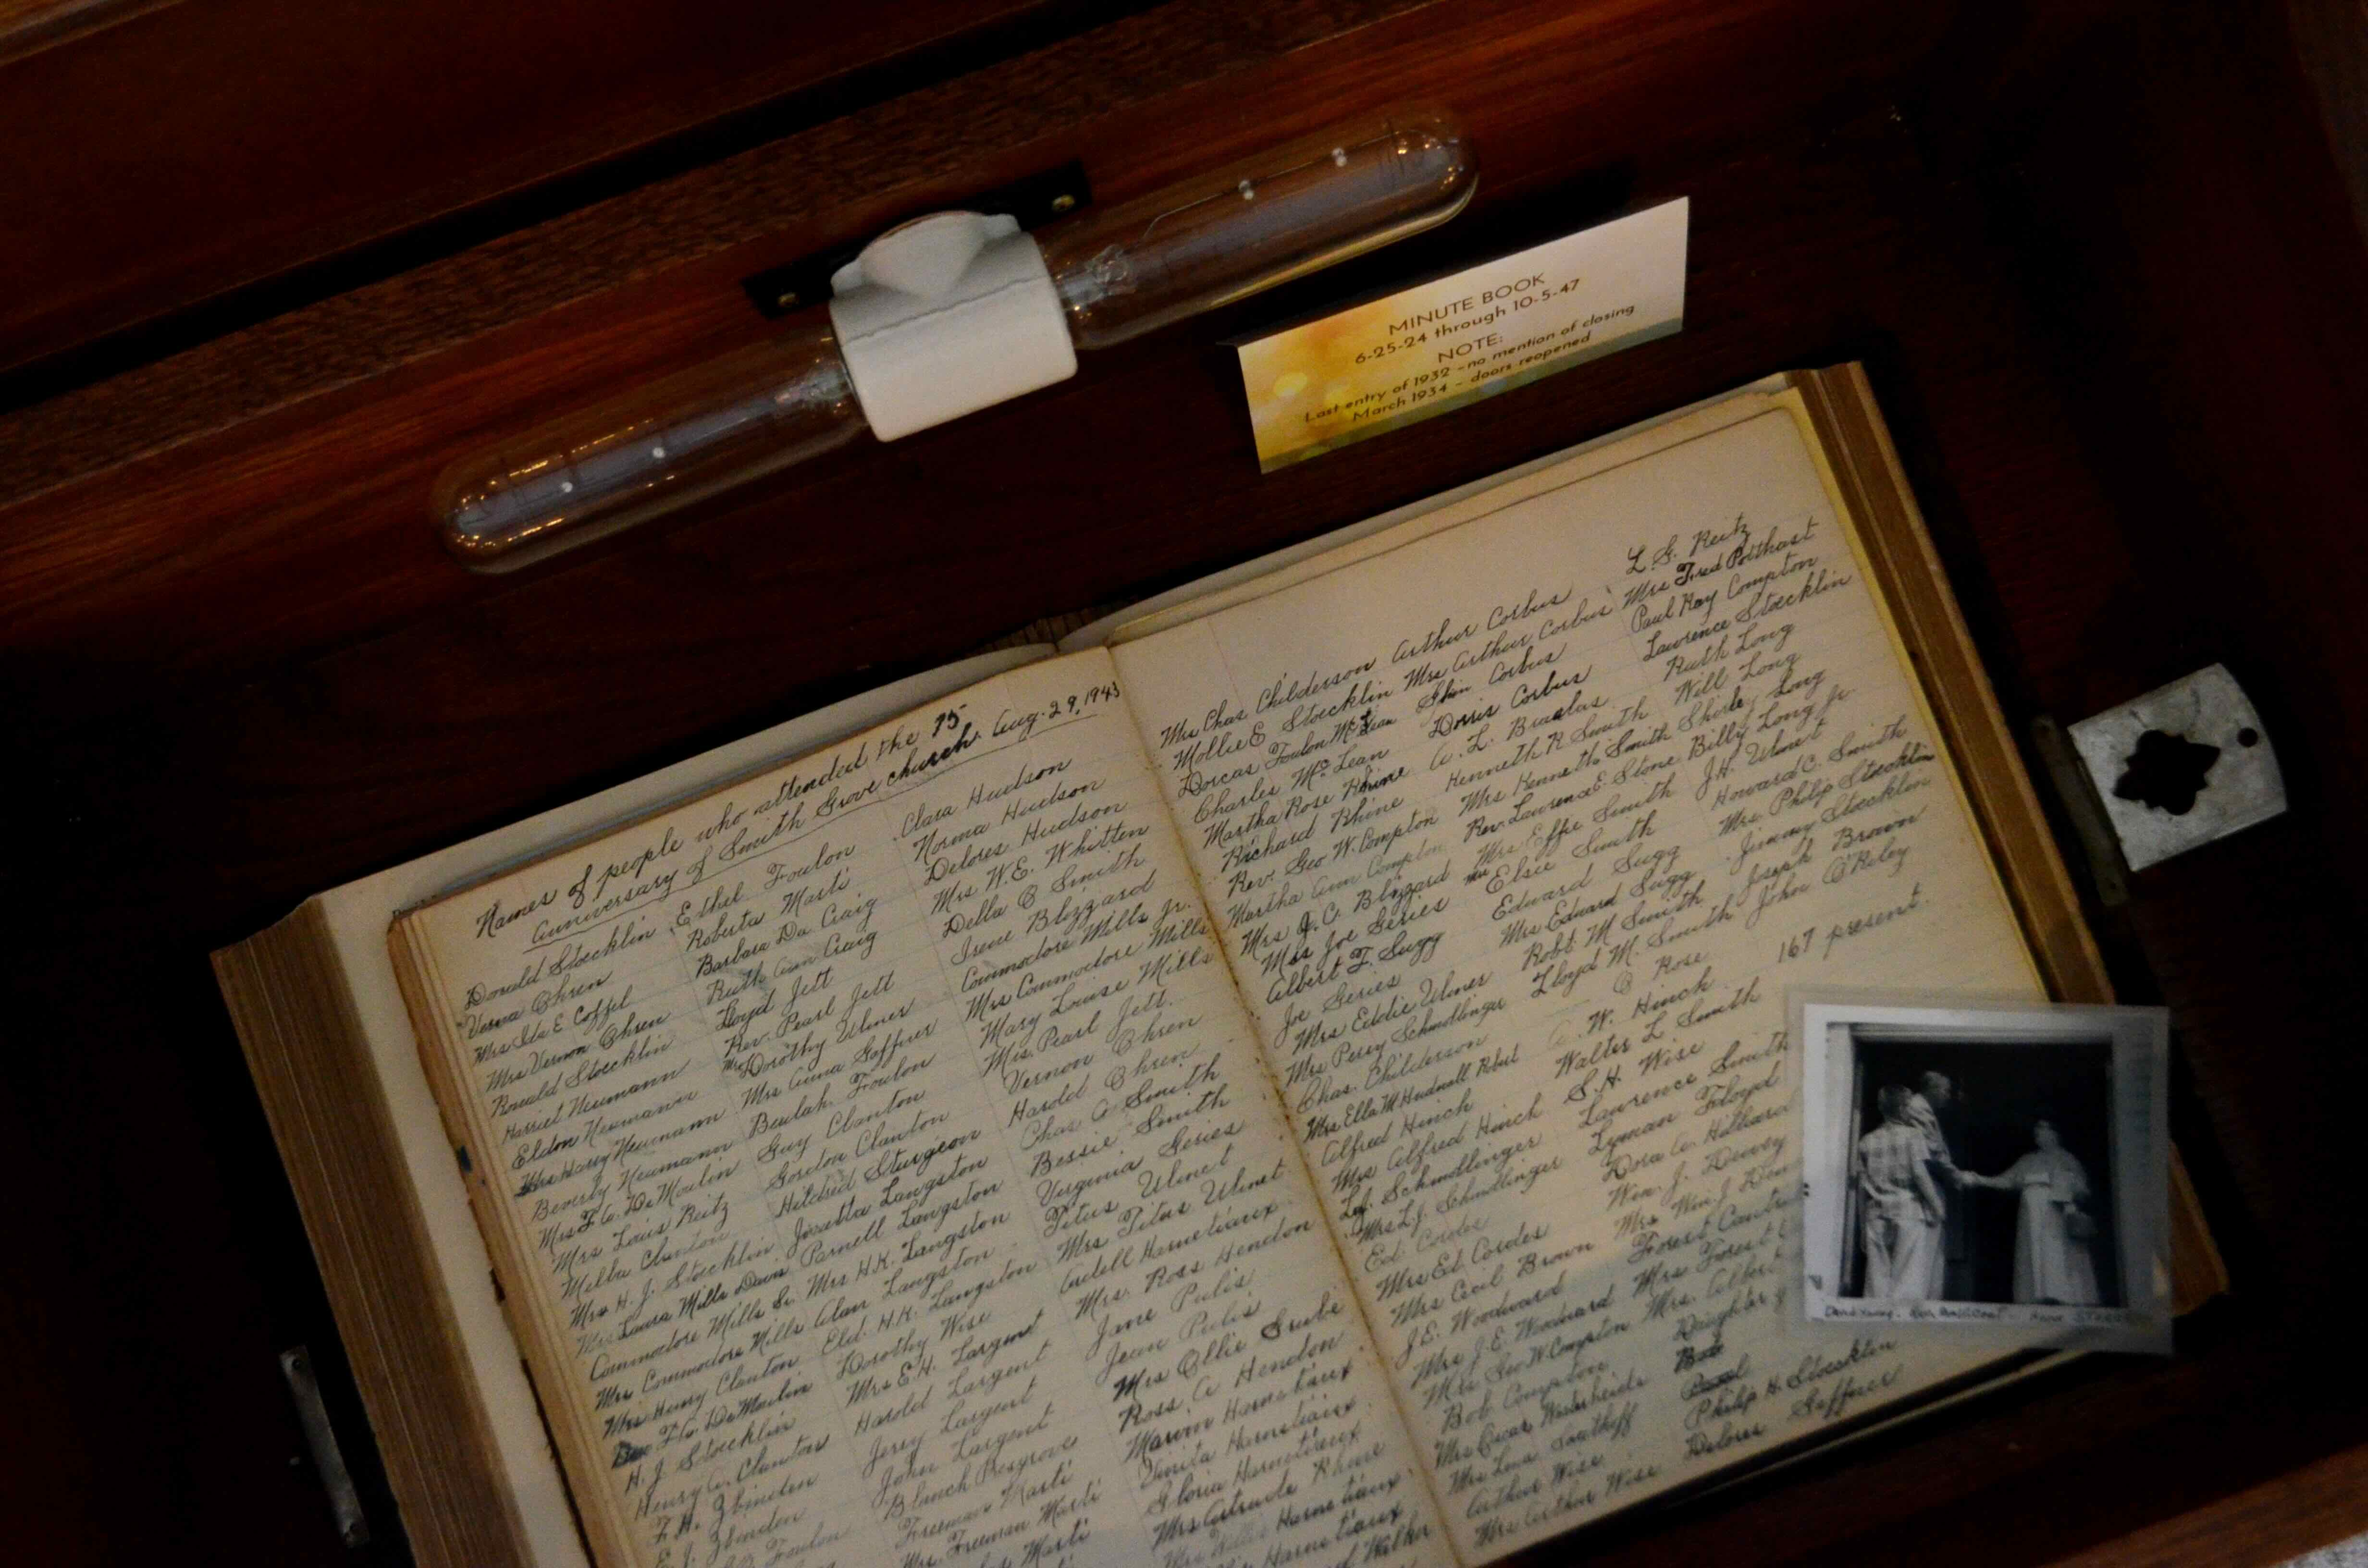 MINUTE BOOK
6-25-24 through 10-5-47
NOTE:
Last entry of 1932 - no mention of closing
March 1934 - doors reopened
Names of people who attended the 75
Anniversary of Smith Grove church. Aug. 29, 1943
Donald Stocklin
Verna Ohren
Mrs Ida E Coffel
Mrs Vernon Ohren
Ronald Stocklin
Harriet Neumann
Eldon Neumann
Mrs Harry Neumann
Beverly Neumann
Mrs F. G. DeMoulin
Mrs Louis Reitz
Melba Clanton
Mrs H. J. Stocklin
Mrs Laura Mills Davis
Commodore Mills Sr.
Mrs Commodore Mills
Mrs Henry Clanton
F. G. DeMoulin
H. J Stocklin
Henry C. Clanton
F. H. Zbinden
E. J. Zbinden
Foulon
Ethel Foulon
Roberta Marti
Barbara Da Craig
Ruth Ann Craig
Lloyd Jett
Rev. Pearl Jett
Mrs Dorothy Ulmer
Mrs Anna Gaffner
Beulah Foulon
Guy Clanton
Gordon Clanton
Hildred Sturgeon
Joetta Langston
Parnell Langston
Mrs H.K. Langston
Alan Langston
Eld. H.K. Langston
Dorothy Wise
Mrs E.H. Largent
Harold Largent
Jerry Largent
John Largent
Blanch Posgrove
Freeman Marti
Mrs. Freeman Marti
Marti
Clara Hudson
Norma Hudson
Delores Hudson
Mrs. W.E. Whitten
Della B Smith
Irene Blizzard
Commodore Mills Jr.
Mrs Commodore Mills
Mary Louise Mills
Mrs. Pearl Jett.
Vernon Ohren
Harold Ohren
Chas A Smith
Bessie Smith
Virginia Geries
Titus Ulmet
Mrs Titus Ulmet
Ardell Harnetiaux
Mrs. Ross Hendon
Jane Pulis
Jean Pulis
Mrs Ollie Grube
Ross A Hendon
Marion Harnetiaux
Junita Harnetiaux
Gloria Harnetiaux
Mrs Gertrude Rhine
Harnetiaux
Harnetiaux
Walker
Mrs Chas Childerson
Mollie E Stocklin
Dorcas Foulon McLean
Charles McLean
Martha Rose Rhine
Richard Rhine
Rev. Geo W. Compton
Martha Ann Compton
Mrs J. C. Blizzard
Mrs Joe Geries
Albert F. Sugg
Joe Geries
Mrs Eddie Ulmer
Mrs Percy Schmollinger
Chas. Childerson
Mrs Ella M Hudnall
Alfred Hinch
Mrs Alfred Hinch
L.J. Schmollinger
Mrs L.J. Schmollinger
Ed Cordes
Mrs Ed Cordes
Mrs Cecil Brown
J.E. Woodward
Mrs J.E. Woodward
Mrs Geo W. Compton
Bob Compton
Mrs Oscar Westerheide
Mrs Lena
Arthur Wise
Mrs Arthur Wise
Arthur Corbus
Mrs Arthur Corbus
Corbus
Dorris Corbus
A. L.
Kenneth R Smith
Mrs Kenneth Smith
Rev. Lawrence E. Stone
Mrs Effie Smith
Mrs Elsie Smith
Edward Sugg
Mrs Edward Sugg
Robt M Smith
Lloyd M. Smith
Rose
W. Hinch
Walter L Smith
S.H. Wise
Lawrence Smith
Lyman Floyd
Dora A. Hilliard
Wm. J. Dewey
Mrs Wm. J
Forest
Mrs. Forest
Mrs. Albert
Daughter
Bob
Philip H. Stocklin
Delores Gaffner
L. G. Reitz
Mrs Fred Potthast
Paul Ray Compton
Lawrence Stocklin
Ruth Long
Will Long
Long
Billy Long Jr.
J.H. Ulmet
Howard C. Smith
Mrs. Philip Stocklin
Jimmy Stocklin
Joseph Brown
John O'Riley
167 present.